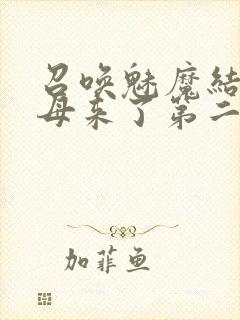 召唤魅魔結
母来了第二
加菲鱼